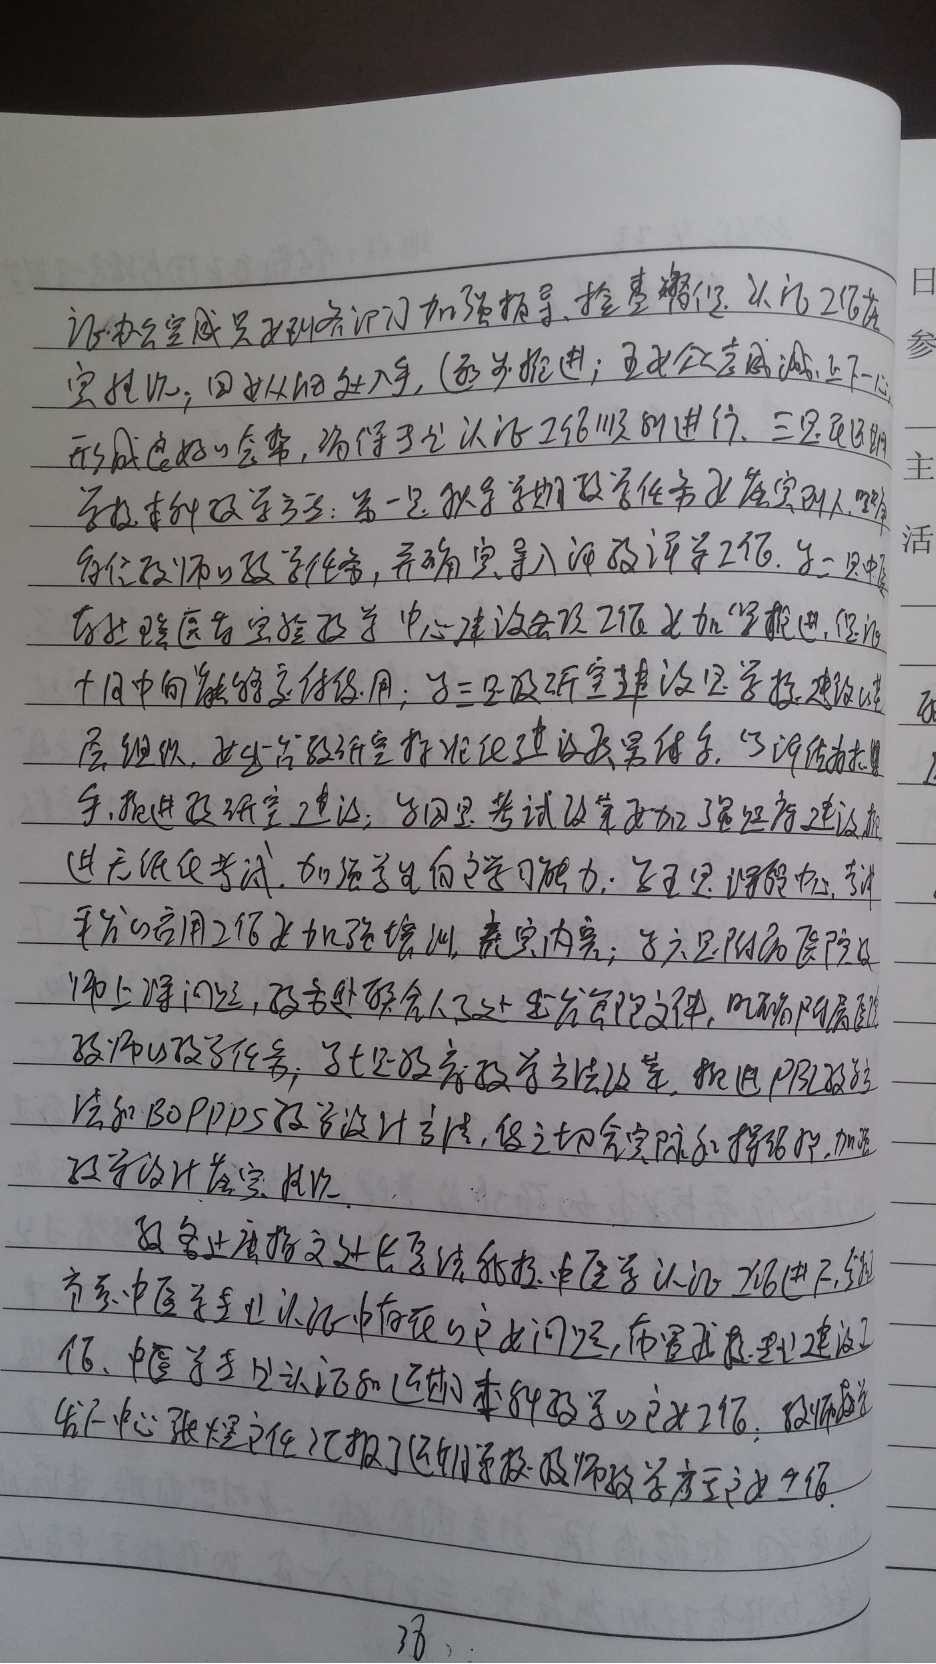 证办公室成员要到各部门加强指导、检查督促认证工作落
实情况；四要从细处入手，逐步推进；五要全员点滴，上下一心，
形成良好的氛围，确保专业认证工作顺利进行。三是近期
学校本科教学方面：第一是秋季学期教学任务要落实到人，明确
每位教师的教学任务，并确定导入评教评学工作。第二是中医
实验教学中心建设各项工作要加紧推进，保证
十月中旬能够交付使用；第三是教研室建设是学校建设的基
层组织，要出台教研室标准化建设及具体，以评估为抓
手，推进教研室建设；第四是考试改革要加强题库建设，推
进无纸化考试，加强学生自主学习能力；第五是课程中心、
平台的应用工作要加强培训，充实内容；第六是附属医院教
师上课问题，教务处联合人事处出台管理文件，明确附属医院
教师的教学任务；第七是教育教学方法改革，推进PBL教学方
法和BOPPPS教学设计方法，但应切合实际和，加强
教学设计落实情况。
教务处唐指文处长总结我校中医学认证工作进展，
中医学专业认证中存在的主要问题，布置我校专业建设工
作、中医学专业认证和近期本科教学的主要工作；教师教学
发展中心张煜主任汇报了近期学校教师教学方面主要工作。
38
日
参
主
活